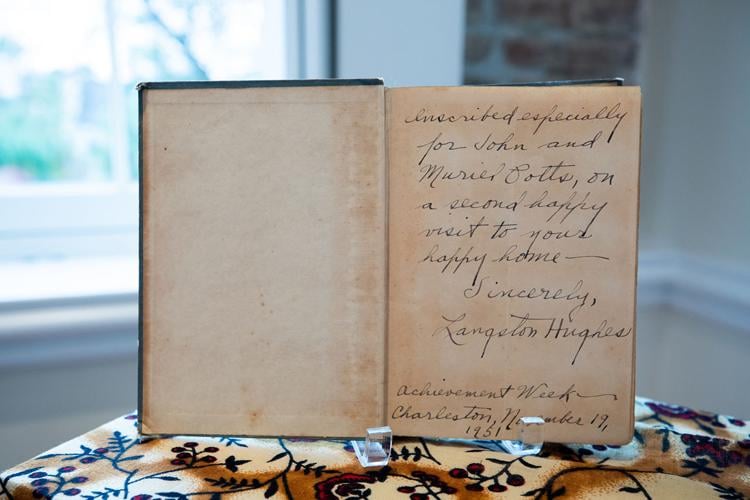 Inscribed especially
for John and
Muriel Potts, on
a second happy
visit to your
happy home—
Sincerely,
Langston Hughes
Achievement Week—
Charleston, November 19,
1951